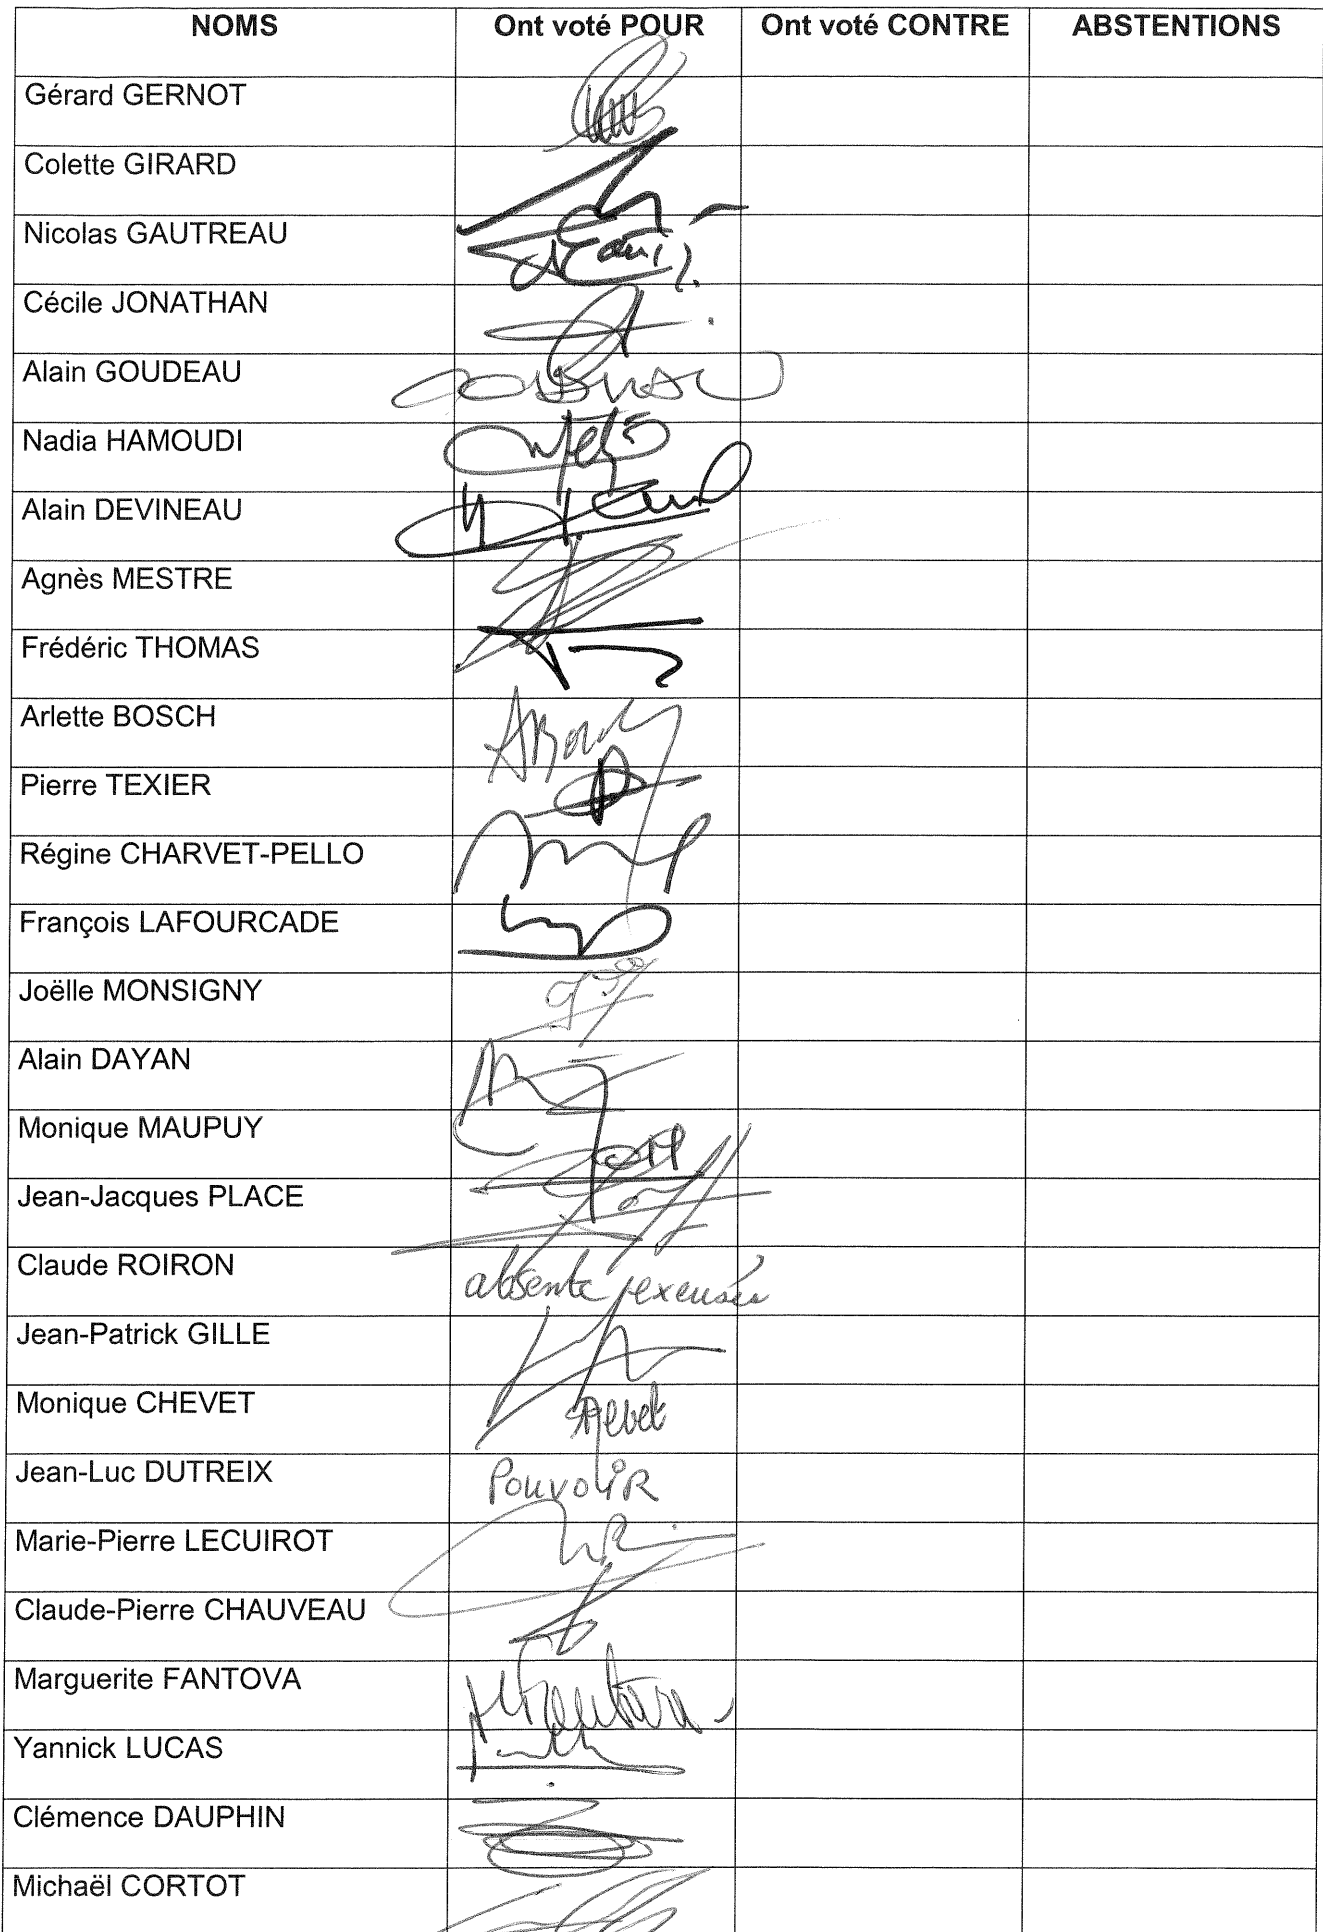 NOMS Ont voté POUR Ont voté CONTRE ABSTENTIONS
Gérard GERNOT
Colette GIRARD
Nicolas GAUTREAU
Cécile JONATHAN
Alain GOUDEAU
Nadia HAMOUDI
Alain DEVINEAU
Agnès MESTRE
Frédéric THOMAS
Arlette BOSCH
Pierre TEXIER
Régine CHARVET-PELLO
François LAFOURCADE
Joëlle MONSIGNY
Alain DAYAN
Monique MAUPUY
Jean-Jacques PLACE
Claude ROIRON absente excusée
Jean-Patrick GILLE
Monique CHEVET
Jean-Luc DUTREIX POUVOIR
Marie-Pierre LECUIROT
Claude-Pierre CHAUVEAU
Marguerite FANTOVA
Yannick LUCAS
Clémence DAUPHIN
Michaël CORTOT